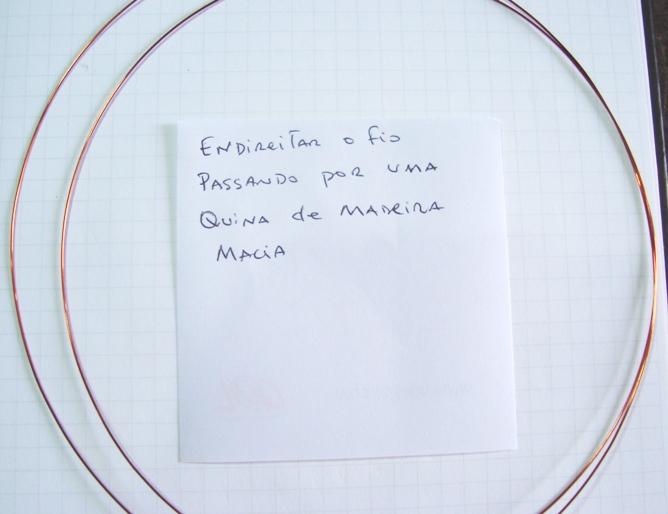 Endireitar o fio
Passando por uma
Quina de madeira
macia